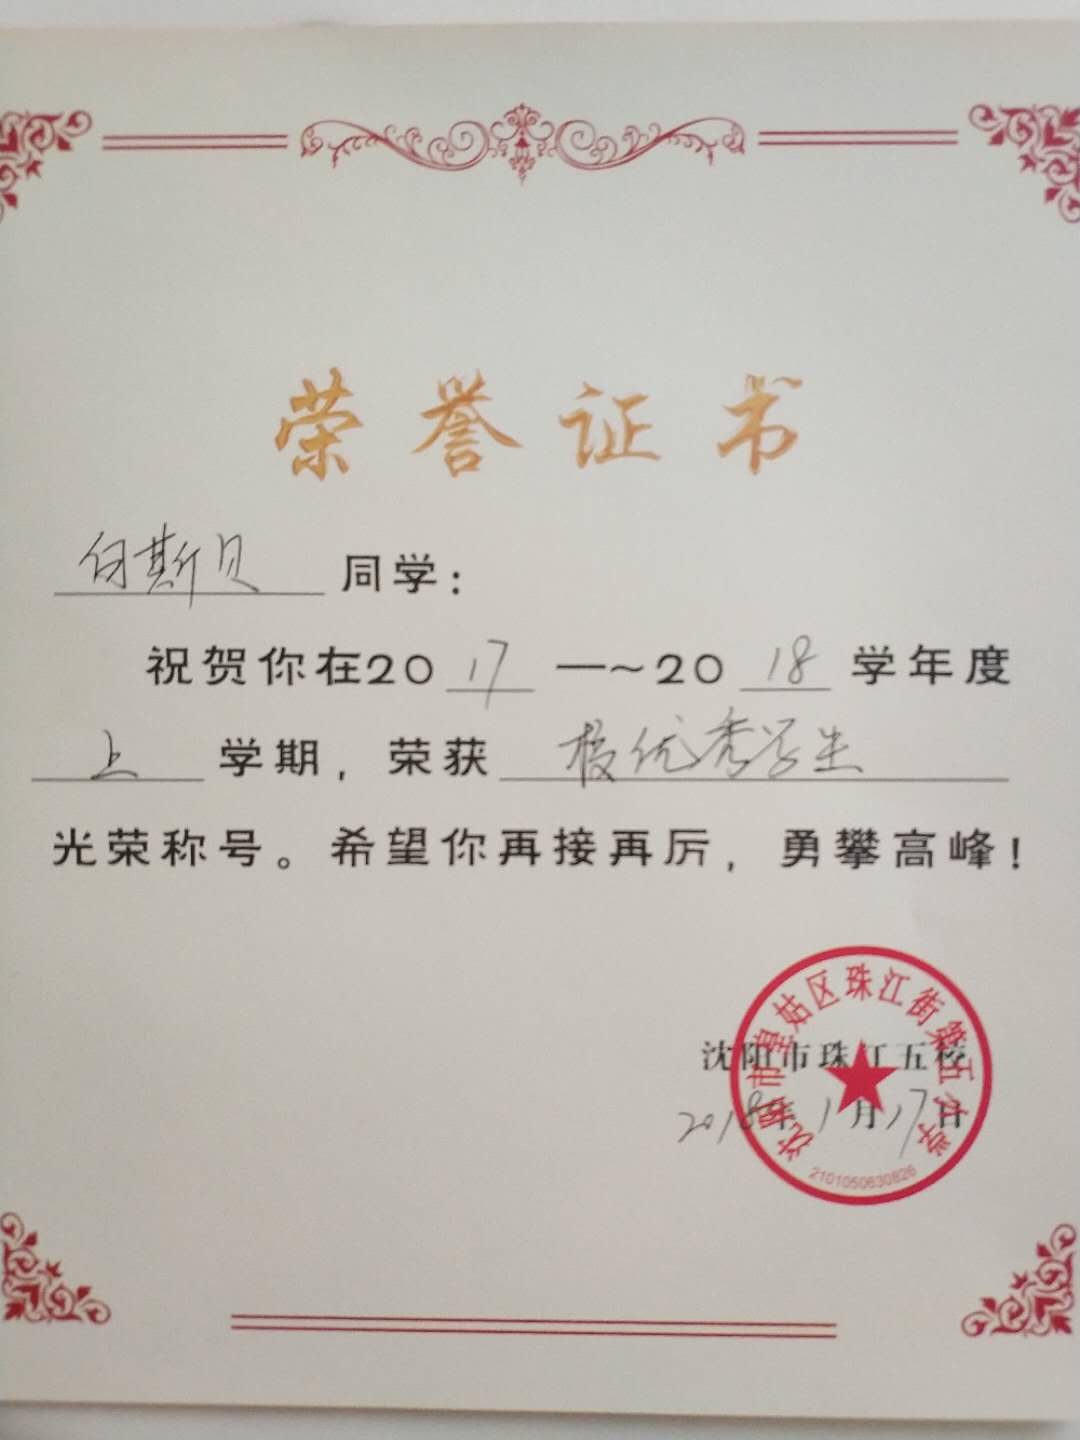 荣誉证书
何斯贝 同学：
祝贺你在20 17 —~20 18 学年度
上 学期，荣获 校优秀学生
光荣称号。希望你再接再厉，勇攀高峰！
沈阳市珠江五校
2018年1月17日
沈阳市皇姑区珠江街第五小学
2101050630826